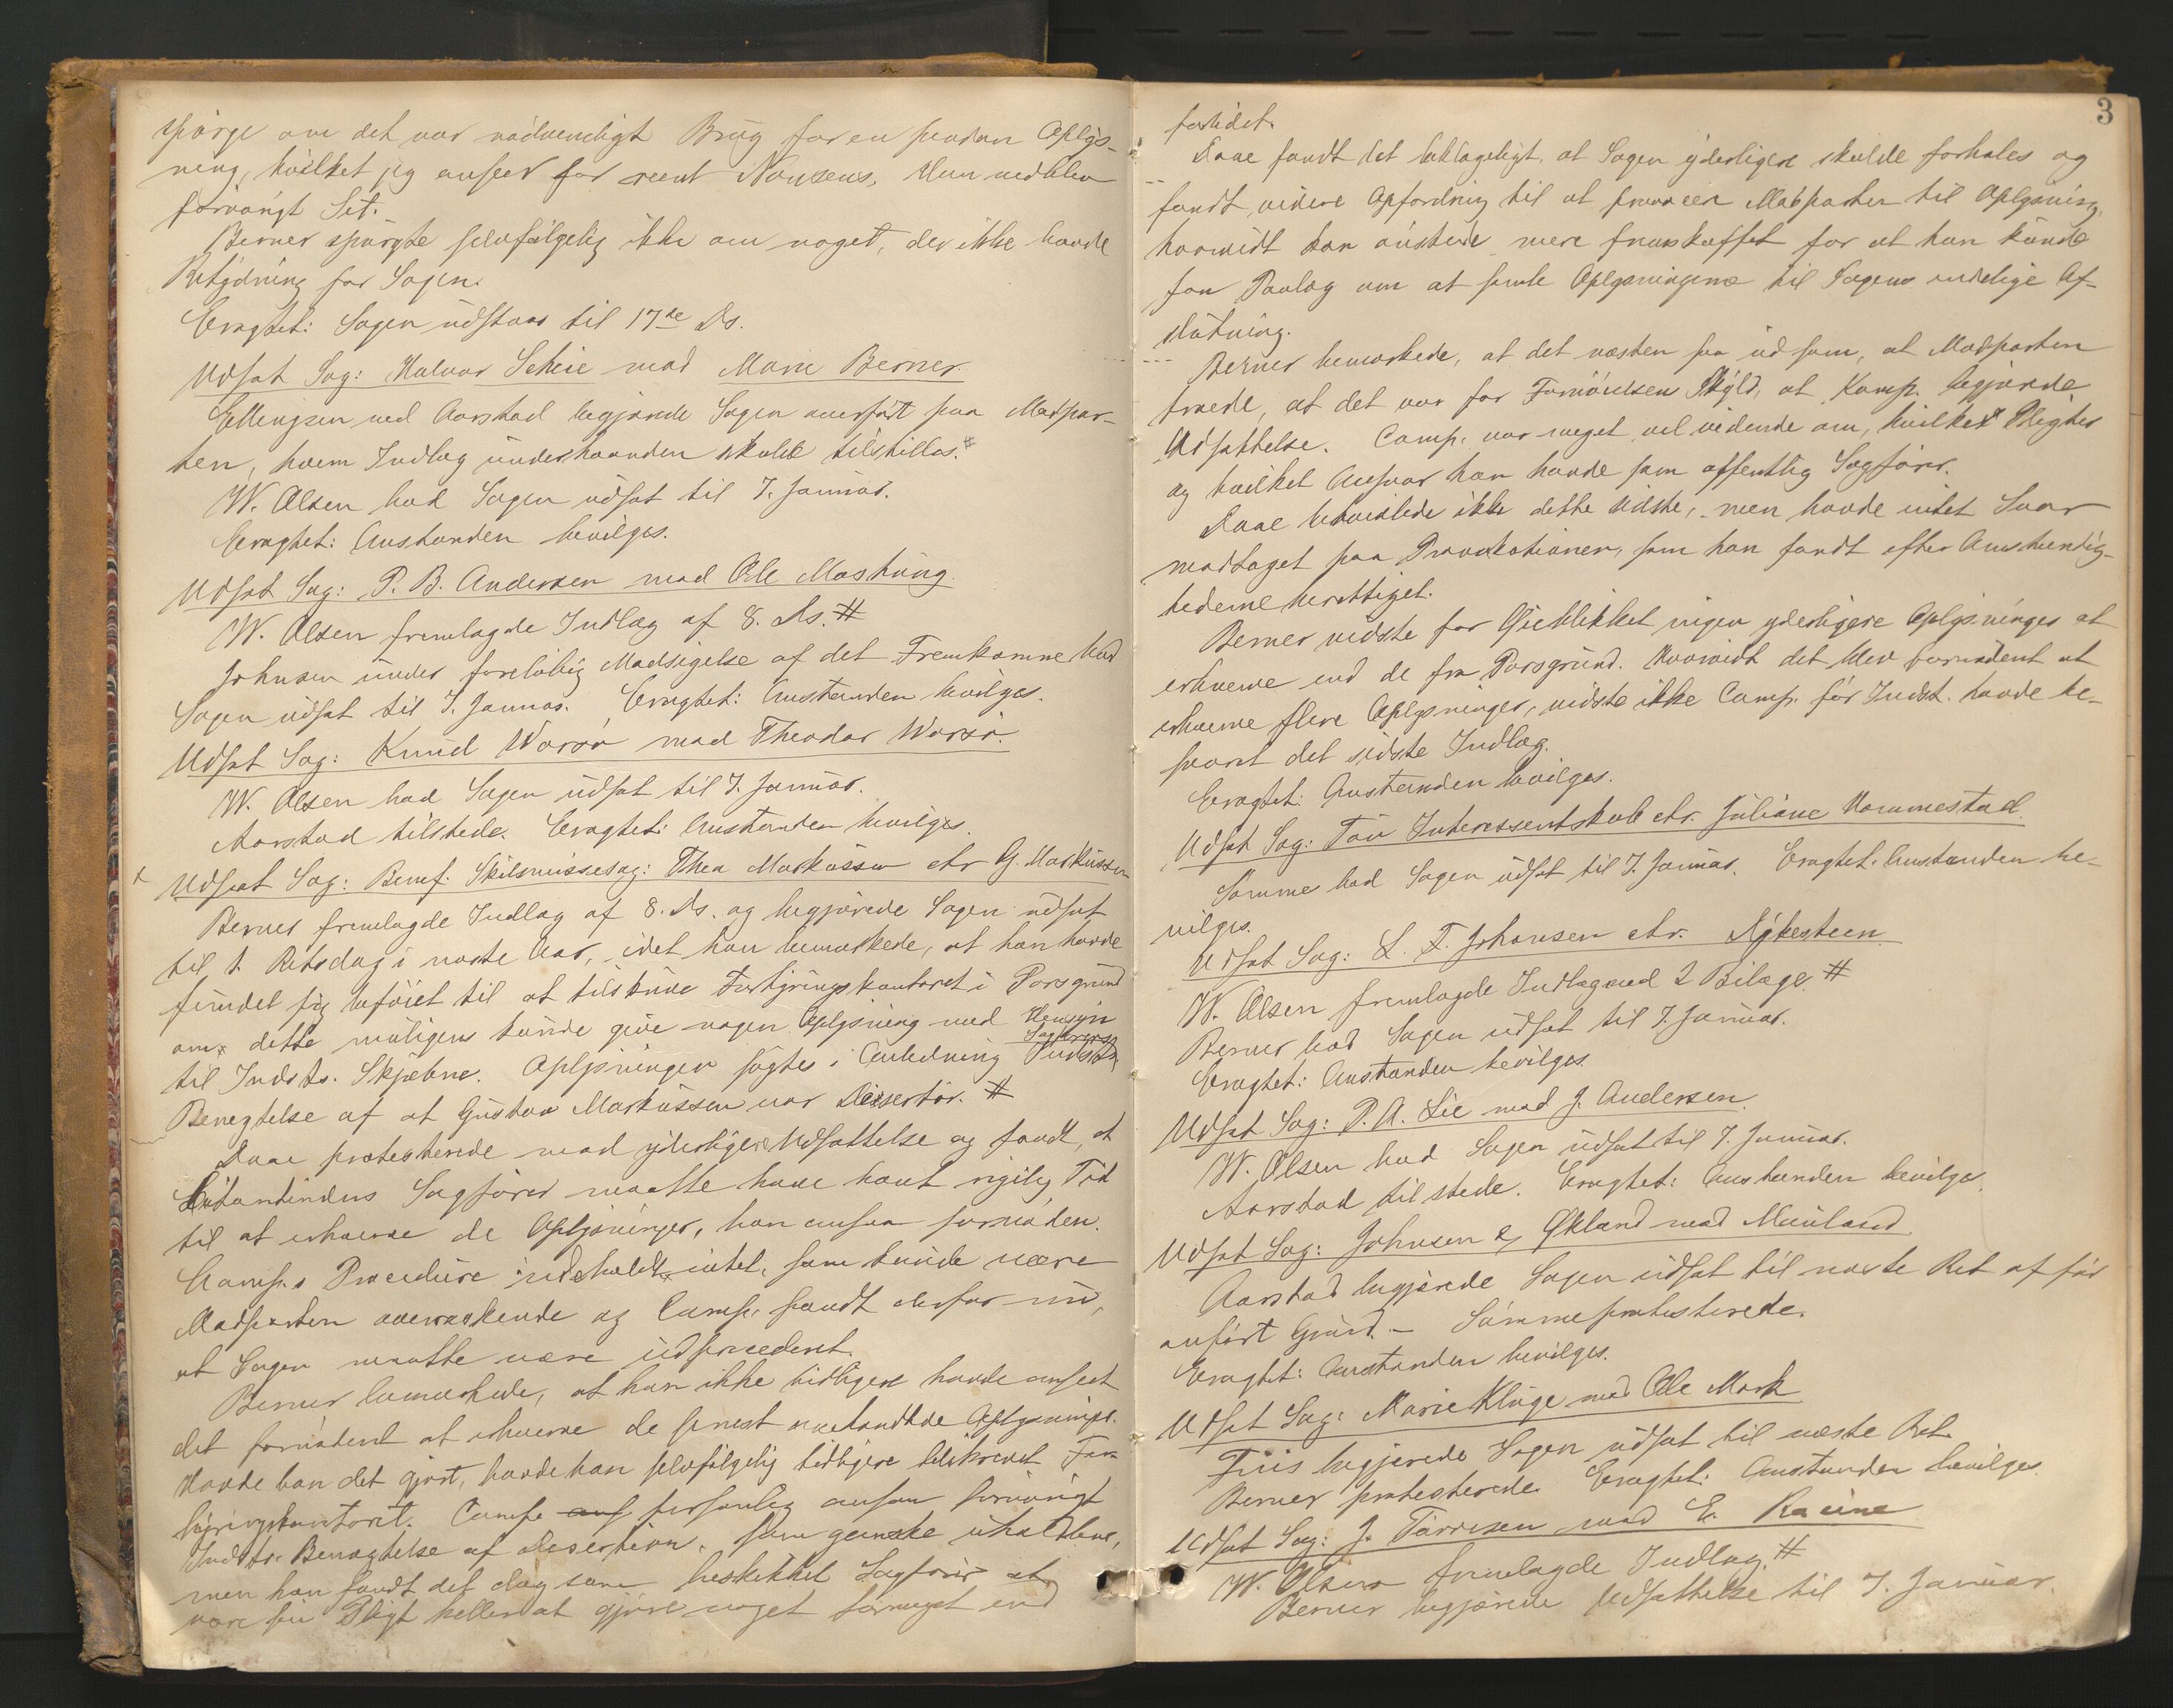 spørge om det var nødvendigt Brug for en saadan Oplys-
ning, hvilket jeg anseer for reent Nonsens. Han nedblev
forøvrigt Sit.
Berner spurgte selvfølgelig ikke om noget, der ikke havde
Betydning for Sagen.
Eragtet: Sagen udstaar til 17de Ds.
Udsat Sag: Halvor Scheie mod Marn Berner.
Ellingsen ved Aarstad begjærede Sagen overført paa Modpar-
ten, hvem Indlæg underhaanden skulde tilstilles. #
W. Olsen bad Sagen udsat til 7. Januar.
Eragtet: Anstanden bevilges.
Udsat Sag: P. B. Andersen mod Ole Mostung.
W. Olsen fremlagde Indlæg af 8. Ds. #
Johnsen under foreløbig Modsigelse af det Fremkomne bad
Sagen udsat til 7. Januar. Eragtet: Anstanden bevilges.
Udsat Sag: Knud Worsø mod Theodor Worsø.
W. Olsen bad Sagen udsat til 7. Januar.
Aarstad tilstede. Eragtet: Anstanden bevilges.
Udsat Sag: Benef. Skilsmissesag: Thea Markussen ctr G. Markussen
Berner fremlagde Indlæg af 8. Ds. og begjærede Sagen udsat
til 1. Retsdag i næste Aar, idet han bemærkede, at han havde
fundet sig beføiet til at tilskrive Forhyringskontoret i Porsgrund
om dette muligens kunde give nogen Oplysning med Hensyn
til Indsts. Skjæbne. Oplysningen søgtes i Anledning Sagførers Indsts
Benegtelse af at Gustav Markussen var Desertør. #
Daae protesterede mod yderligere Udsættelse og fandt, at
Citantindens Sagfører maatte have havt rigelig Tid
til at erhverve de Oplysninger, han ansaa fornøden.
Comp.s Procedure indeholdt intet, som kunde være
Modparten overraskende og Comp. fandt derfor nu,
at Sagen maatte være udprocederet.
Berner bemærkede, at han ikke tidligere havde anseet
det fornødent at erhverve de senest omhandlede Oplysninger.
Havde han det gjort, havde han selvfølgelig tidligere tilskrevet For-
hyringskontoret. Comp. ans personlig ansaa forøvrigt
Indsts. Benegtelse af Desertion, som ganske uholdbar,
men han fandt det dog som beskikket Sagfører at
være sin Pligt hellere at gjøre noget formeget end
3
forlidet.
Daae fandt det beklageligt, at Sagen yderligere skulde forhales og
fandt videre Opfordring til at provocere Modparten til Oplysning,
hvorvidt han ønskede mere fremskaffet for at han kunde
faa Paalæg om at samle Oplysningerne til Sagens endelige Af-
slutning.
Berner bemærkede, at det næsten saa ud som, at Modparten
troede, at det var for Fornøielsens Skyld, at Comp. begjærede
Udsættelse. Comp. var meget vel vidende om, hvilke Pligter
og hvilket Ansvar han havde som offentlig Sagfører.
Daae betvivlede ikke dette sidste, men havde intet Svar
modtaget paa Provokationen, som han fandt efter Omstændig-
hederne berettiget.
Berner vidste for Øieblikket ingen yderligere Oplysninger at
erhverve end de fra Porsgrund. Hvorvidt det blev fornødent at
erhverve flere Oplysninger, vidste ikke Comp. før Indst. havde be-
svaret det sidste Indlæg.
Eragtet: Anstanden bevilges.
Udsat Sag: Tou Interessentskab ctr. Juliane Hommestad.
Sømme bad Sagen udsat til 7. Januar. Eragtet: Anstanden be-
vilges.
Udsat Sag: L. T. Johansen ctr. Nykesteen
W. Olsen fremlagde Indlæg med 2 Bilage. #
Berner bad Sagen udsat til 7. Januar.
Eragtet: Anstanden bevilges.
Udsat Sag: P. A. Lie mod J. Andersen.
W. Olsen bad Sagen udsat til 7. Januar.
Aarstad tilstede. Eragtet: Anstanden bevilges.
Udsat Sag: Johnsen & Økland mod Mauland.
Aarstad begjærede Sagen udsat til næste Ret af før
anført Grund. – Sømme protesterede.
Eragtet: Anstanden bevilges.
Udsat Sag: Marie Kluge mod Ole Mork
Friis begjærede Sagen udsat til næste Ret.
Berner protesterede. Eragtet: Anstanden bevilges.
Udsat Sag: J. Tørresen mod E. Racine
W. Olsen fremlagde Indlæg #
Berner begjærede Udsættelse til 7. Januar.